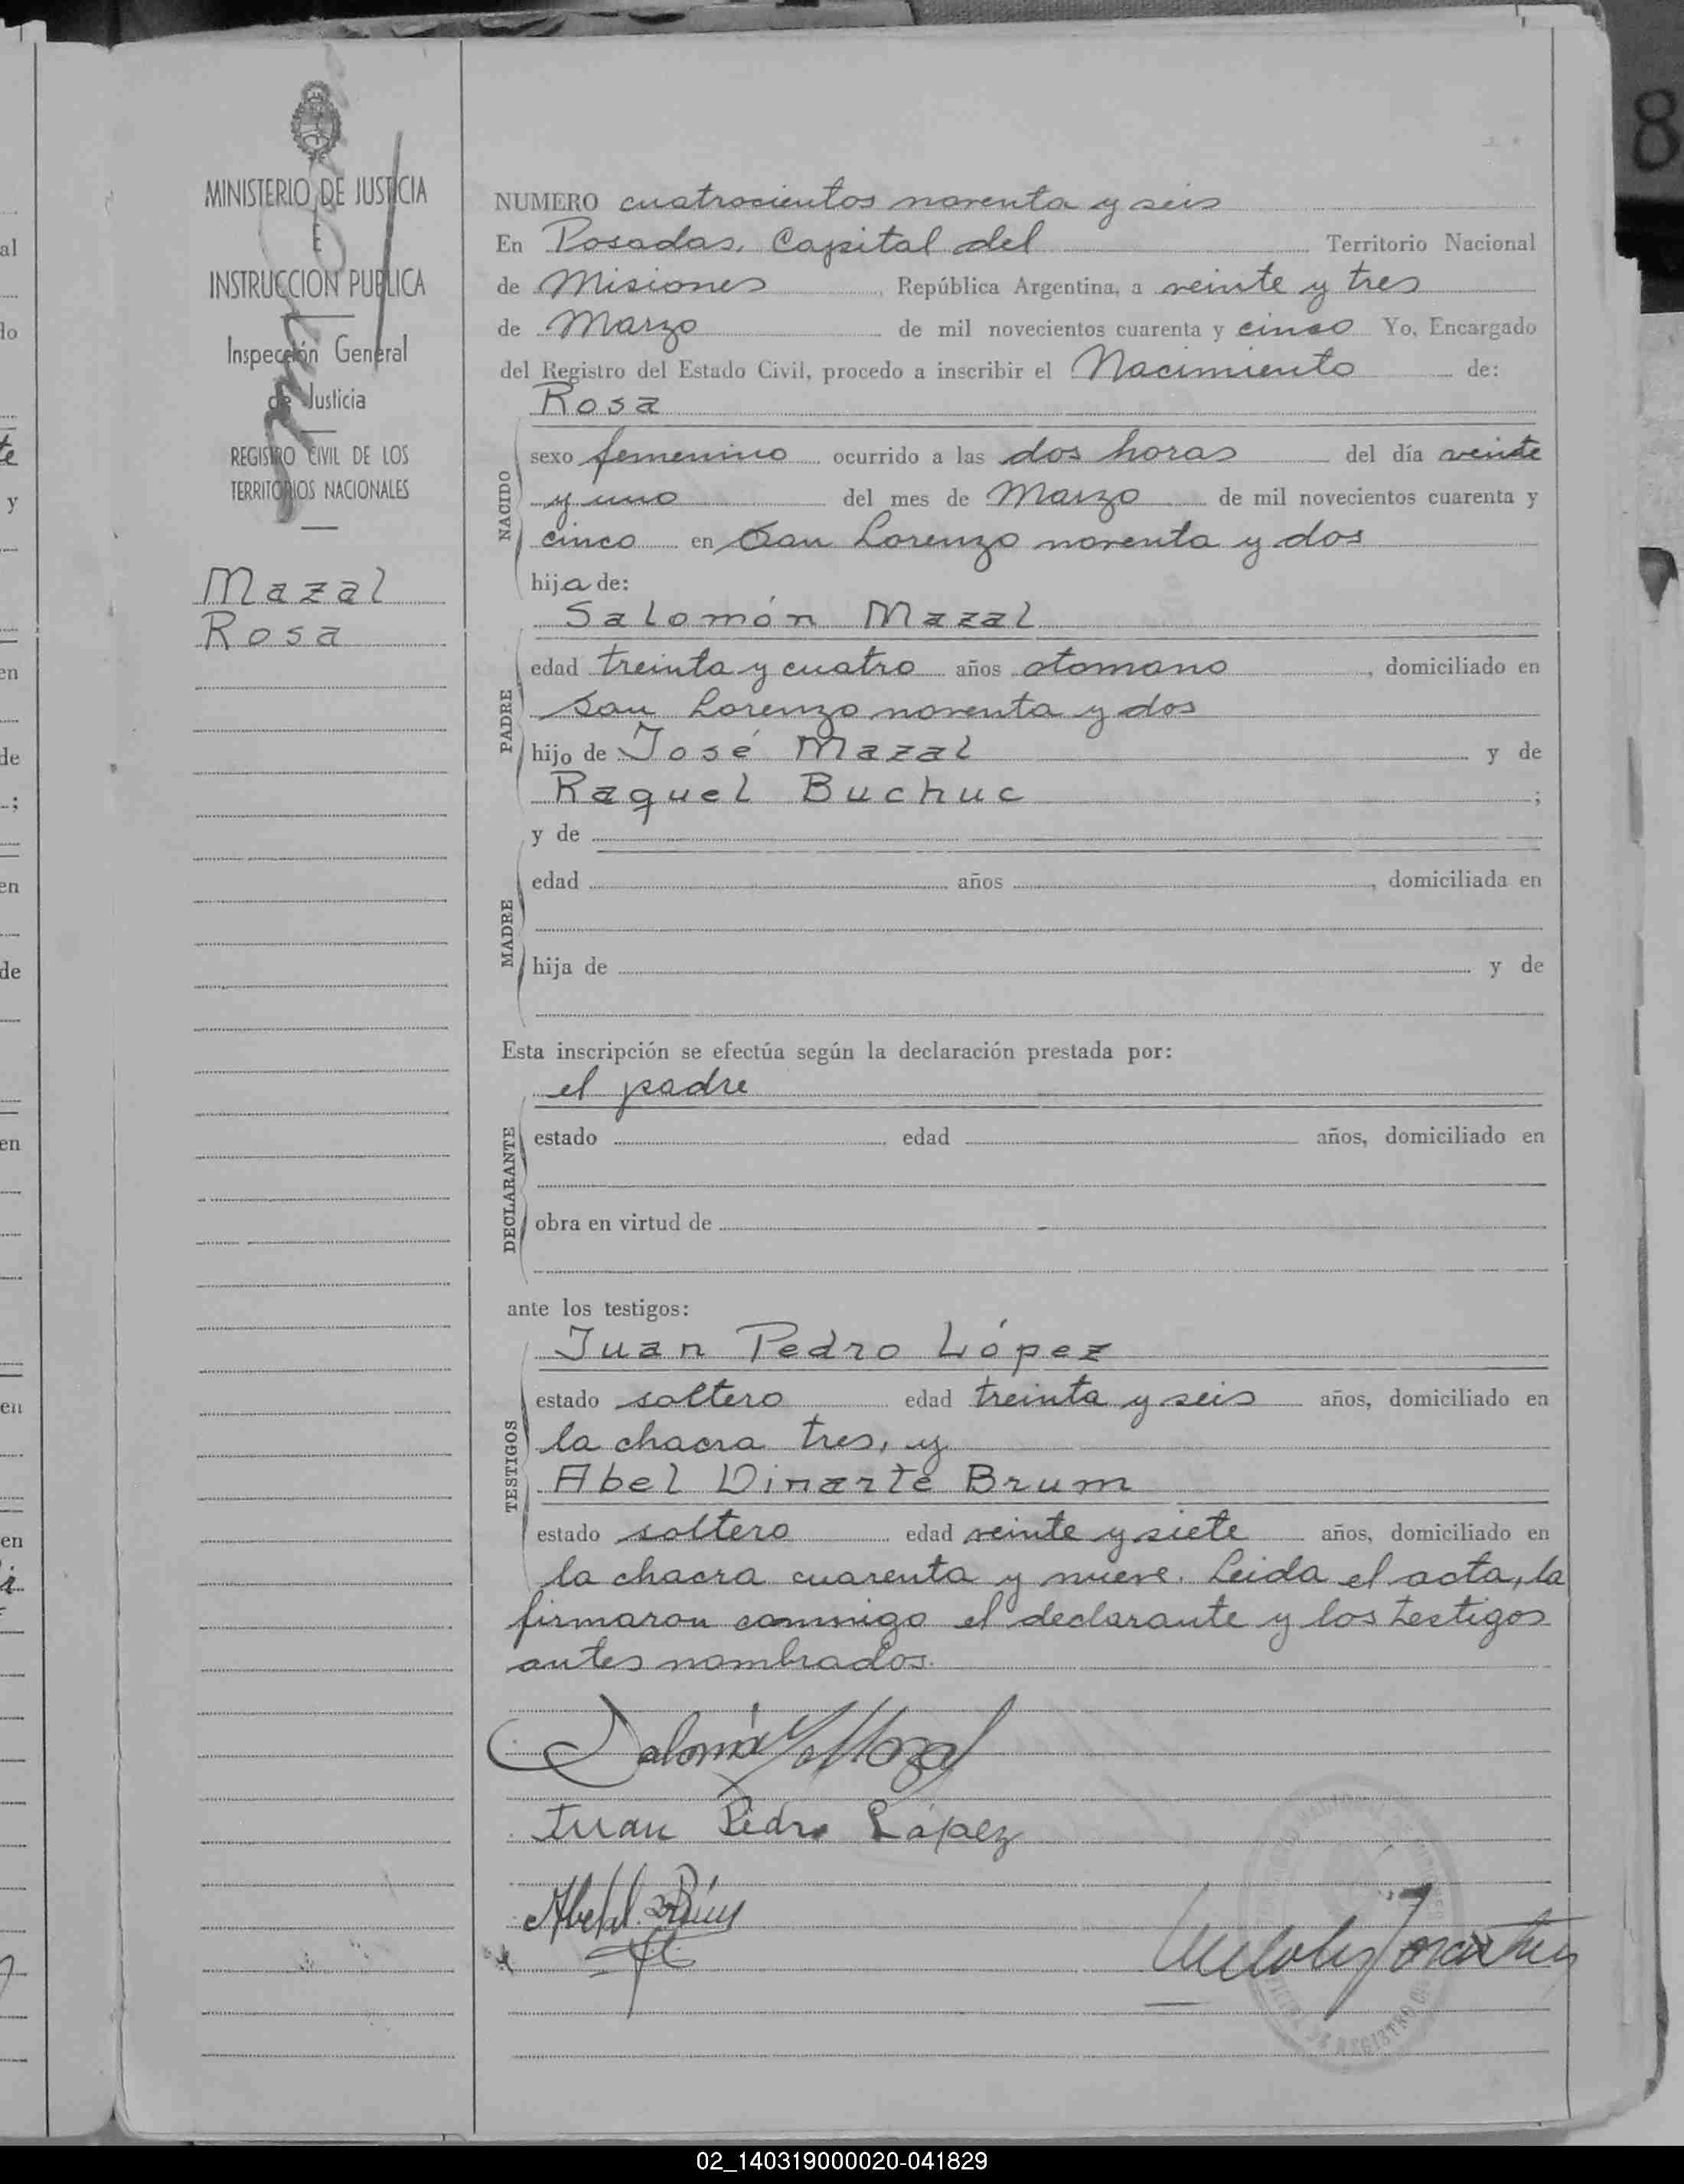 MINISTERIO DE JUSTICIA
E
INSTRUCCION PUBLICA
Inspección General
de Justicia
REGISTRO CIVIL DE LOS
TERRITORIOS NACIONALES
Mazal
Rosa
NUMERO cuatrocientos noventa y seis
En Posadas, Capital del Territorio Nacional
de Misiones, República Argentina, a veinte y tres
de Marzo de mil novecientos cuarenta y cinco Yo, Encargado
del Registro del Estado Civil, procedo a inscribir el Nacimiento de:
Rosa
NACIDO
sexo femenino ocurrido a las dos horas del día veinte
y uno del mes de Marzo de mil novecientos cuarenta y
cinco en San Lorenzo noventa y dos
hija de:
Salomón Mazal
PADRE
edad treinta y cuatro años otomano, domiciliado en
San Lorenzo noventa y dos
hijo de José Mazal y de
Raquel Buchuc;
y de
MADRE
edad años, domiciliada en
hija de y de
Esta inscripción se efectúa según la declaración prestada por:
el padre
DECLARANTE
estado, edad años, domiciliado en
obra en virtud de
ante los testigos:
Juan Pedro López
TESTIGOS
estado soltero edad treinta y seis años, domiciliado en
la chacra tres, y
Abel Dinarte Brum
estado soltero edad veinte y siete años, domiciliado en
la chacra cuarenta y nueve. Leida el acta, la
firmaron conmigo el declarante y los testigos
antes nombrados.
Salomón Mazal
Juan Pedro López
8
02_140319000020-041829